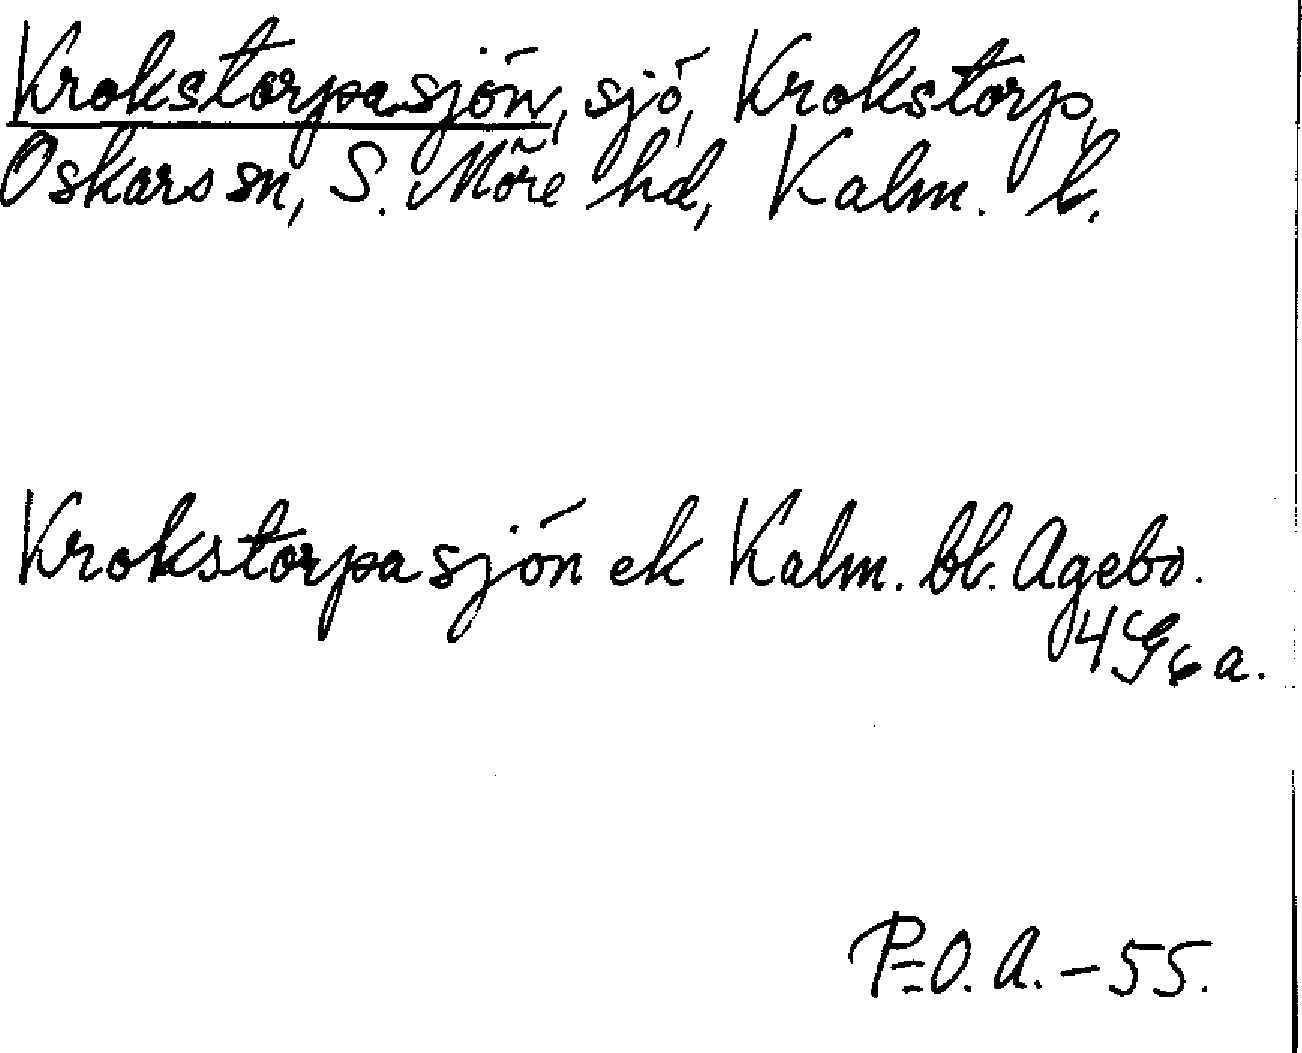 Krokstorpasjön, sjö, Krokstorp,
Oskars sn, S. Möre hd, Kalm. l.
Krokstorpasjön ek Kalm. bl. Agebo.
4G6a.
P=O. A. – 55.